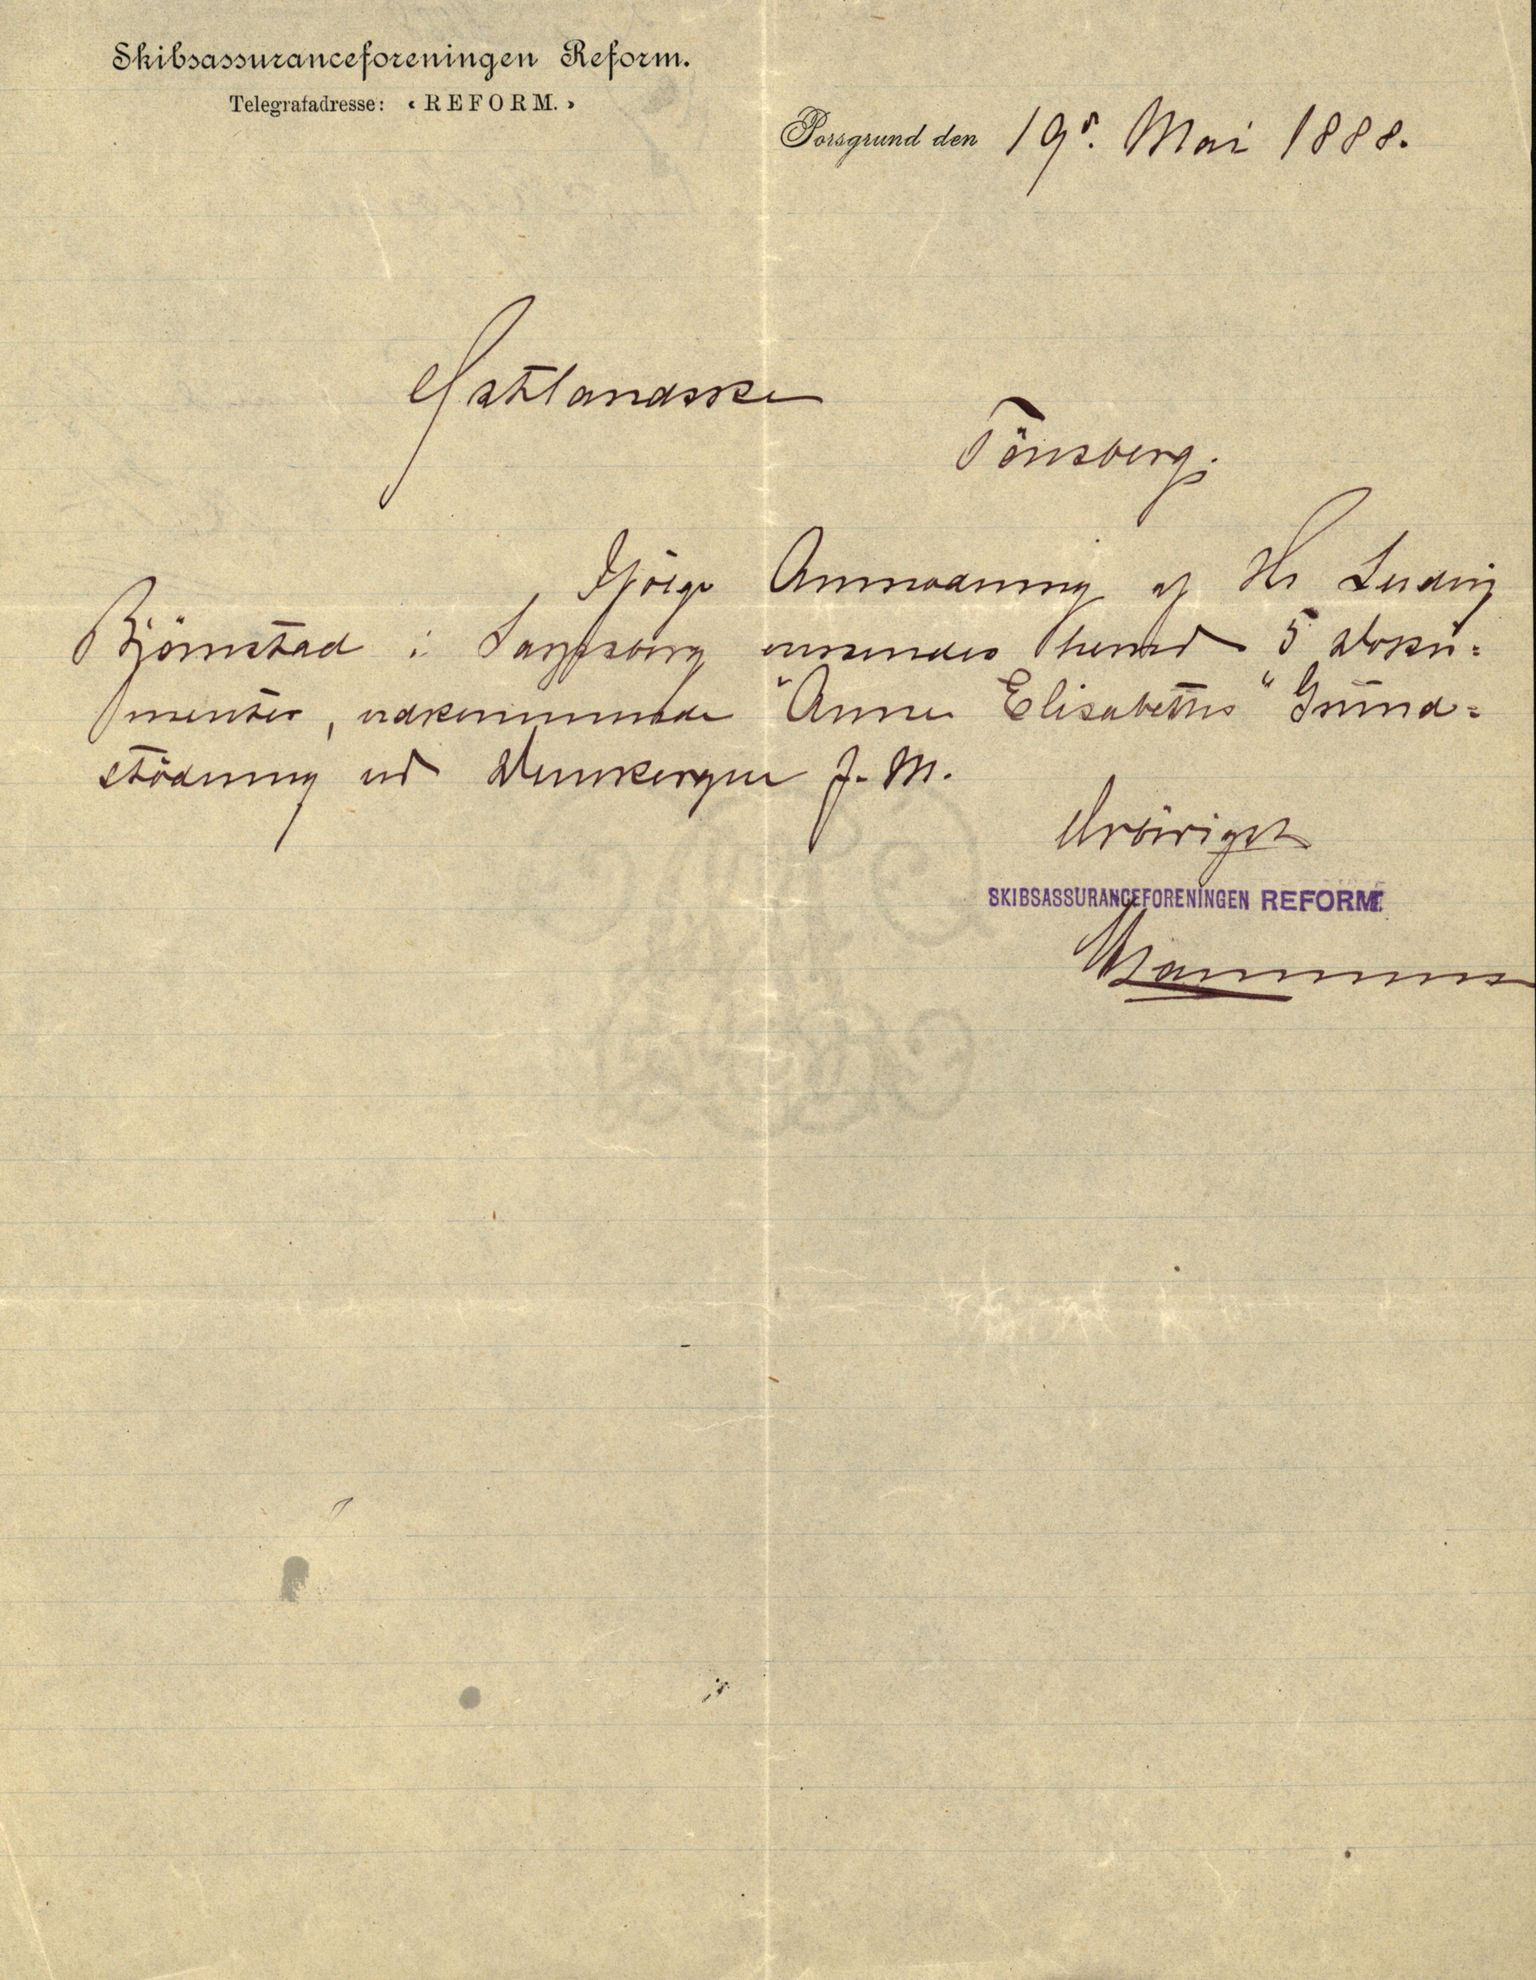 Skibsassuranceforeningen Reform.
Telegrafadresse: «REFORM.»
Porsgrund den 19de Mai 1888.
Østlandske
Tönsberg.
Ifölge Anmodning af Hr Ludvig
Björnstad i Sarpsborg oversendes herved 5 Doku=
menter, vedkommende "Anne Elisabeths" Grund=
stödning ved Dunkerque f. M.
Ærbödigst
SKIBSASSURANCEFORENINGEN REFORM.